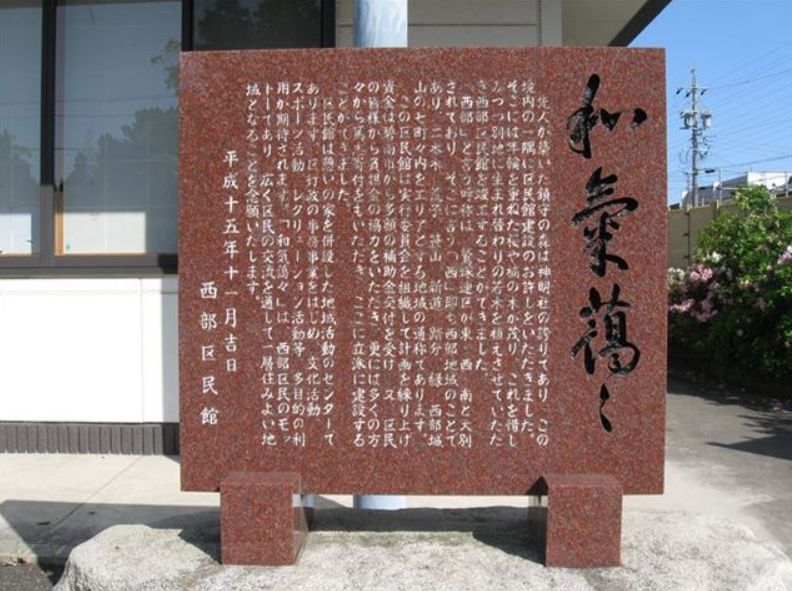 和氣藹々
先人が築いた鎮守の森は神明社の誇りであり この
境内の一隅に区民館建設のお許しをいただきました。
そこには年輪を重ねた桜や楠の木が茂り これを惜し
みつつ別地に生まれ替わりの若木を植えさせていただ
き西部区民館を竣工することができました。
西部」と言う呼称は 鷲塚連区が東 西 南と大別
されており そこに言う「西」即ち西部地域のことで
あり、二本木 荒子 笹山 新道 踏分 様 西部城
山の七町々内をエリアとする地域の通称であります。
この区民館は実行委員会を組織して計画を練り上げ
資金は碧南市から多額の補助金交付を受け 又 区民
の皆様から負担金の協力をいただき 更には多くの方
々から篤志寄付をもいただき、ここに立派に建設する
ことができました。
区民館は憩いの家を併設した地域活動のセンターで
あります。区行政の事務事業をはじめ 文化活動
スポーツ活動 レクリェーション活動等 多目的の利
用が期待されます。「和気藹々」は、西部区民のモッ
トーであり 広く区民の交流を通して一層住みよい地
域となることを念願いたします。
平成十五年十一月吉日
西部区民館